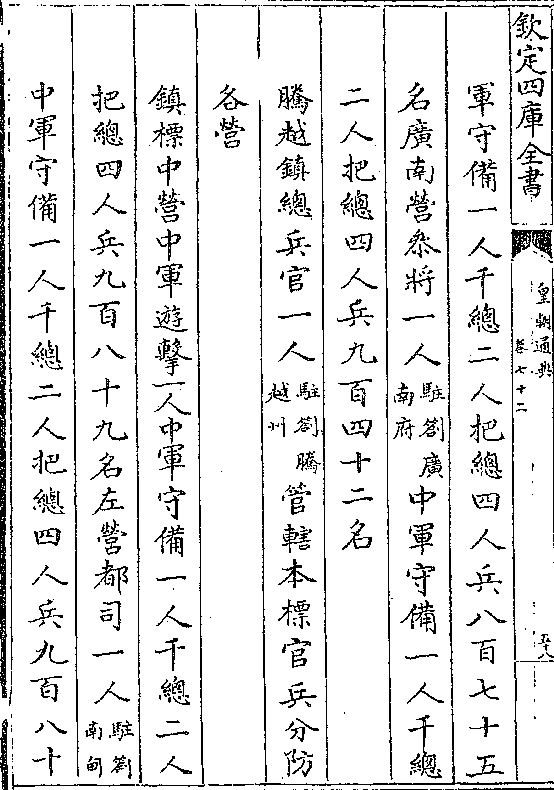 欽定四庫全書
皇朝通典
卷七十二
五十八
軍守備一人千總二人把總四人兵八百七十五
名廣南營叅將一人駐劄廣南府中軍守備一人千總
二人把總四人兵九百四十二名
騰越鎮總兵官一人駐劄騰越州管轄本標官兵分防
各營
鎮標中營中軍遊擊一人中軍守備一人千總二人
把總四人兵九百八十九名左營都司一人駐劄南甸
中軍守備一人千總二人把總四人兵九百八十